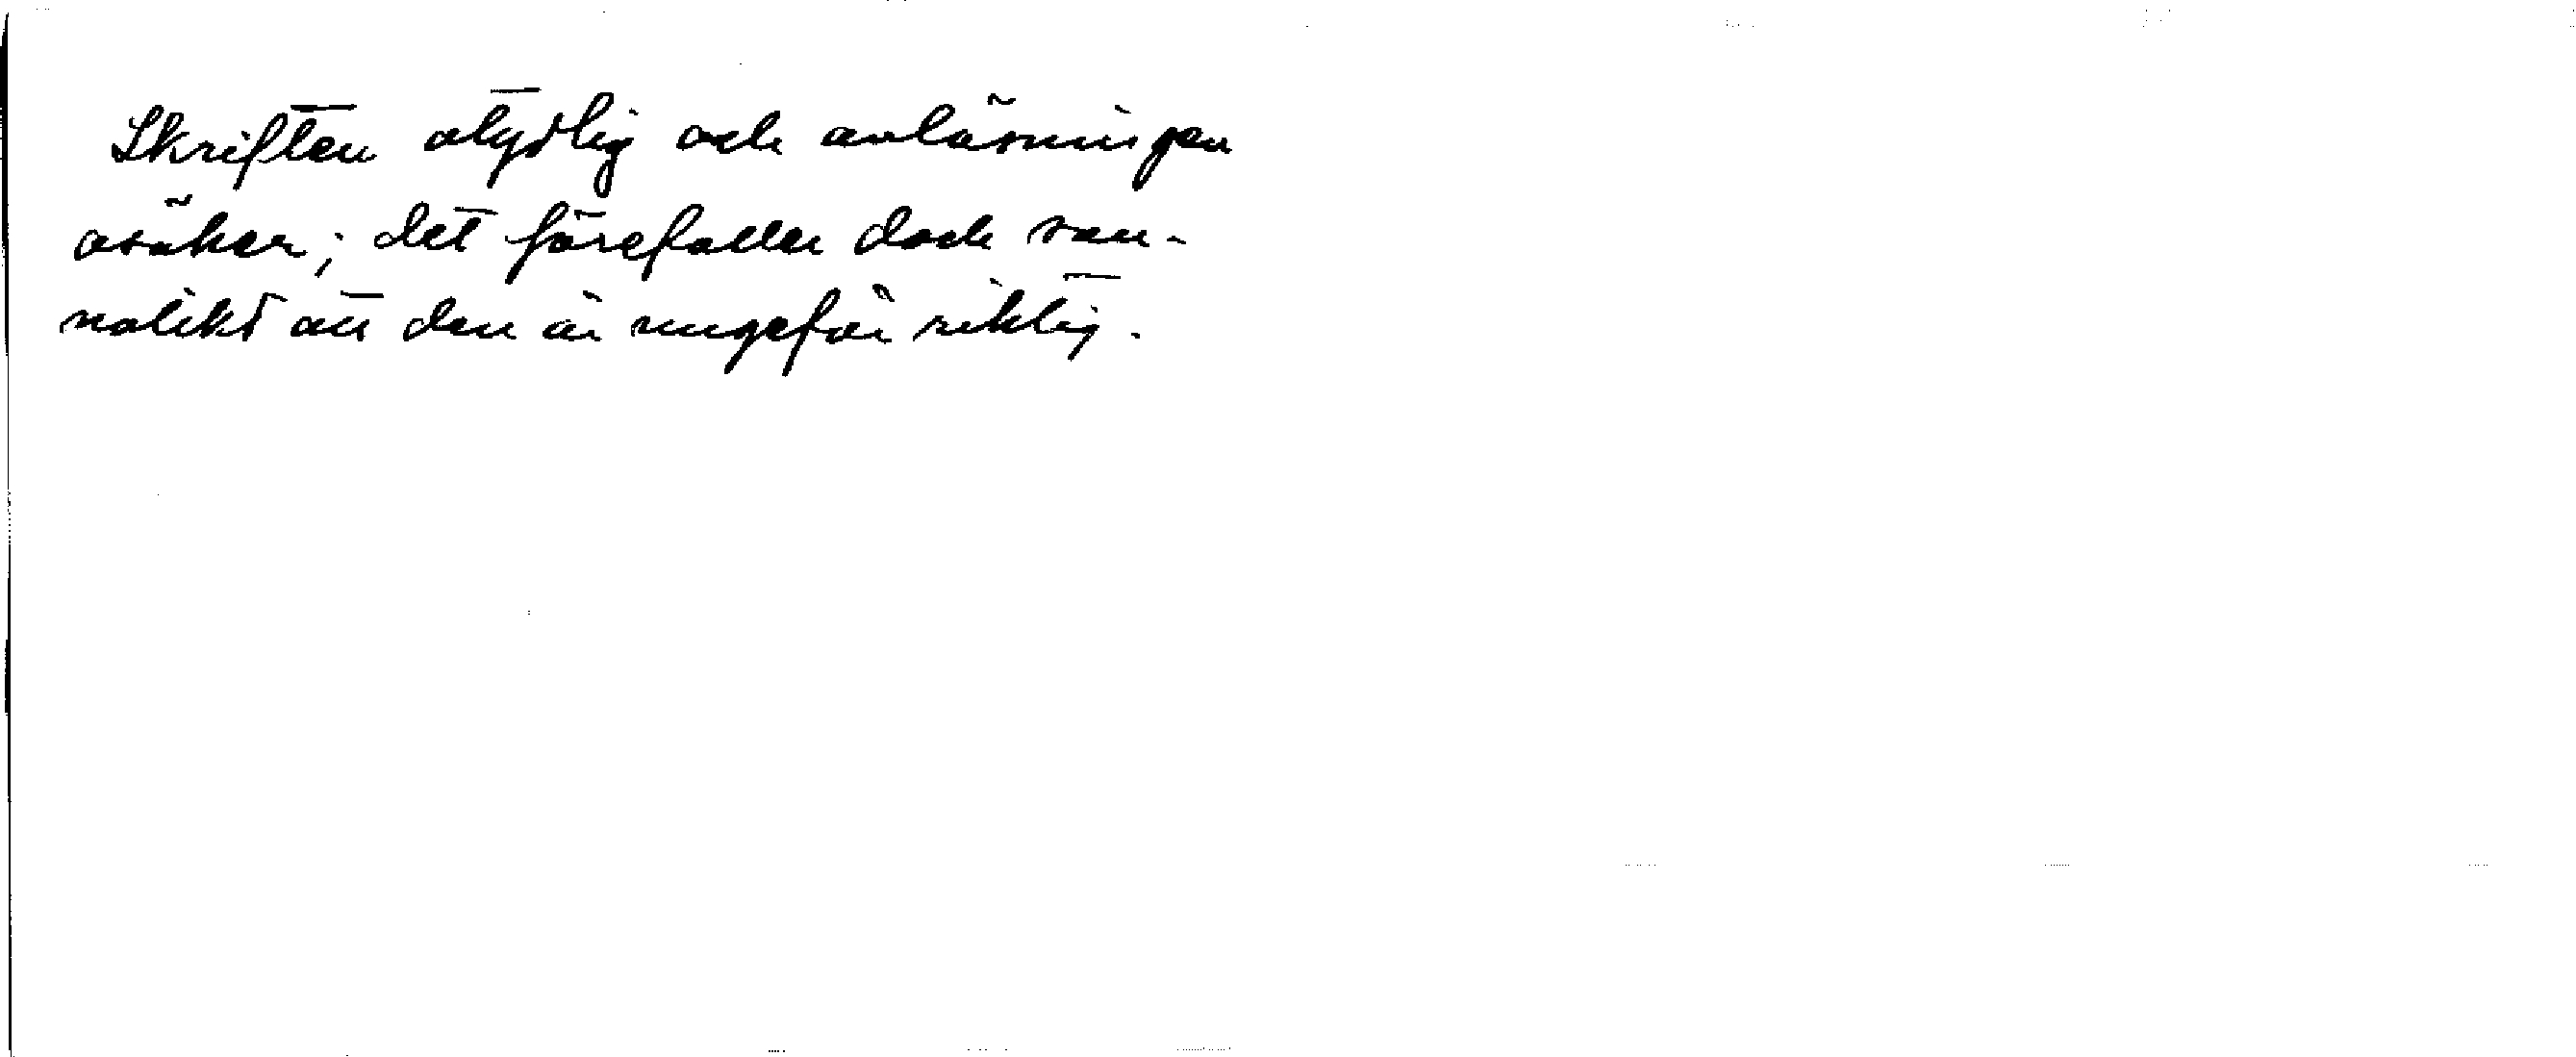 Skriften otydlig och avläsningen
osäker; det förefaller dock san-
nolikt att den är ungefär riktig.